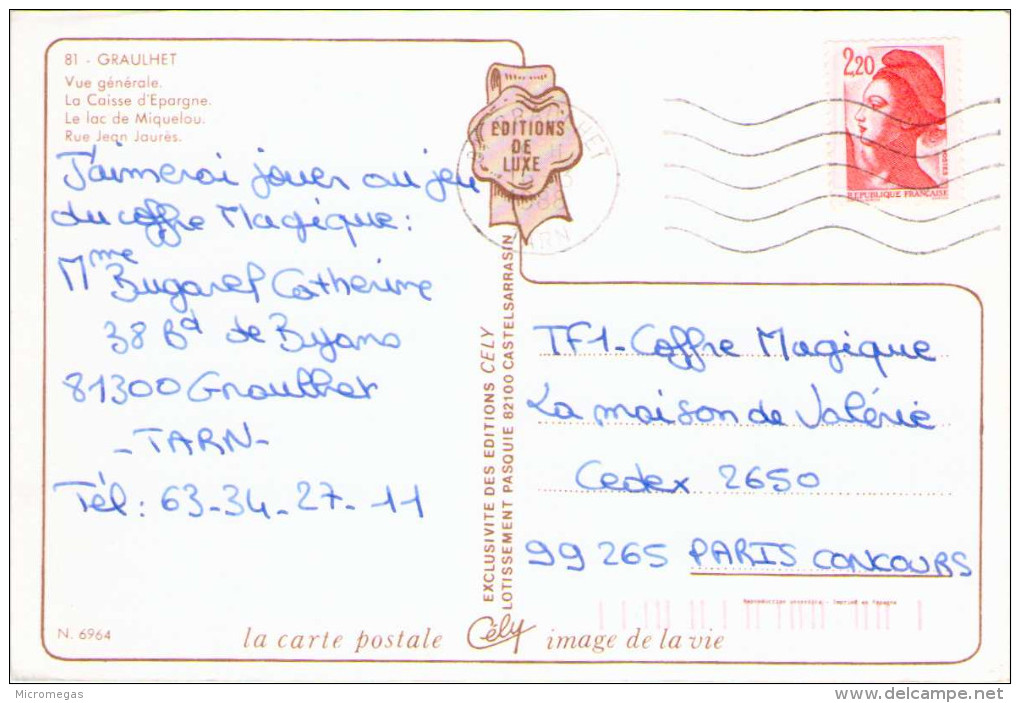 81 - GRAULHET
Vue générale.
La Caisse d'Epargne.
Le lac de Miquelou.
Rue Jean Jaurès.
J'aimerai jouer au jeu
du coffre Magique :
Mme Bugarel Catherine
38 Bd de Byans
81300 Graulhet
- TARN -
Tél : 63-34-27-11
N. 6964
EDITIONS
DE
LUXE
TARN
EXCLUSIVITE DES EDITIONS CELY
LOTISSEMENT PASQUIE 82100 CASTELSARRASIN
2,20
POSTES
REPUBLIQUE FRANÇAISE
TF1-Coffre Magique
La maison de Valérie
Cedex 2650
99 265 PARIS CONCOURS
Reproduction interdite - Imprimé en Espagne
la carte postale Cély image de la vie
Micromegas
www.delcampe.net